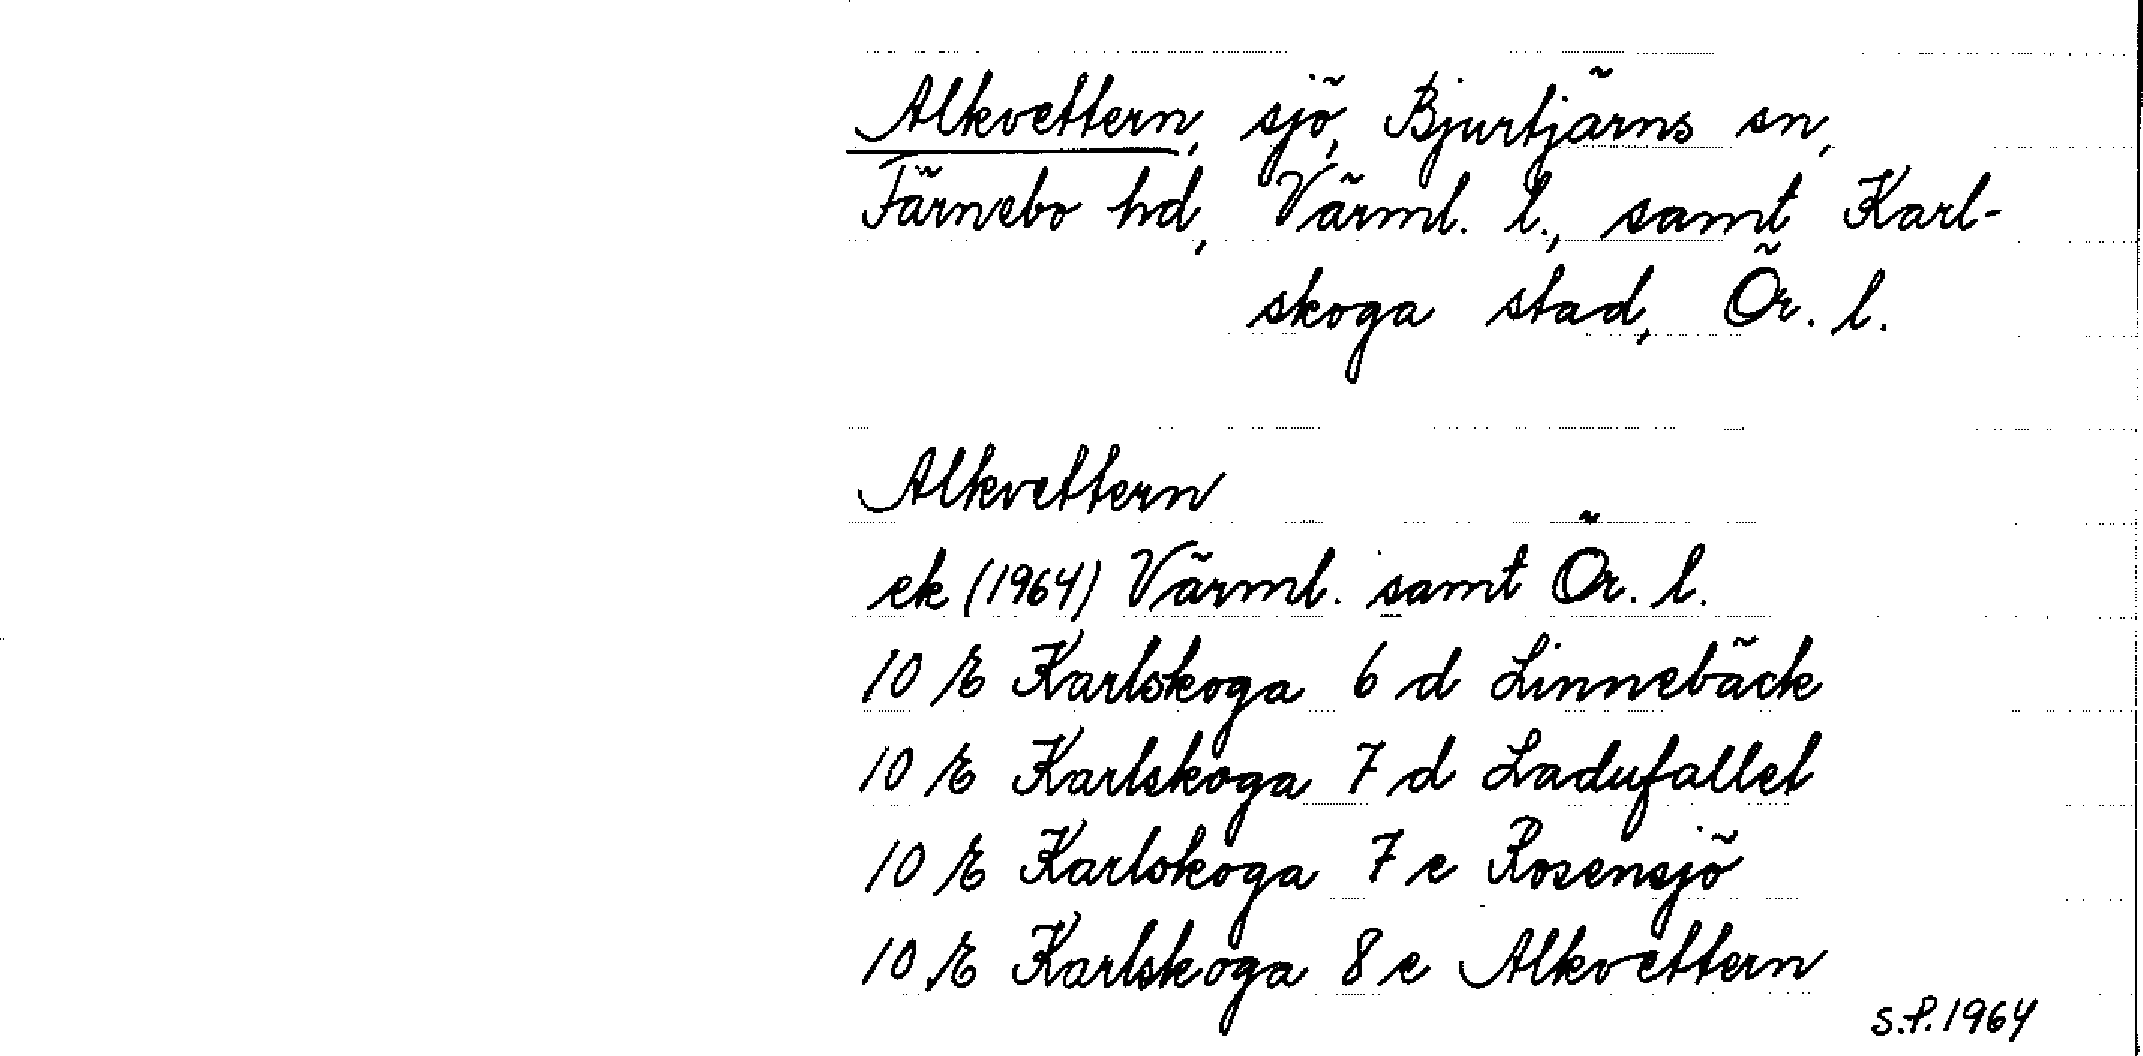 Alkvettern, sjö, Bjurtjärns sn,
Färnebo hd, Värml. l., samt Karl-
skoga stad, Ör. l.
Alkvettern
ek (1964) Värml. samt Ör. l.
10 E Karlskoga 6 d Linnebäck
10 E Karlskoga 7 d Ladufallet
10 E Karlskoga 7 e Rosensjö
10 E Karlskoga 8 e Alkvettern
S.P. 1964